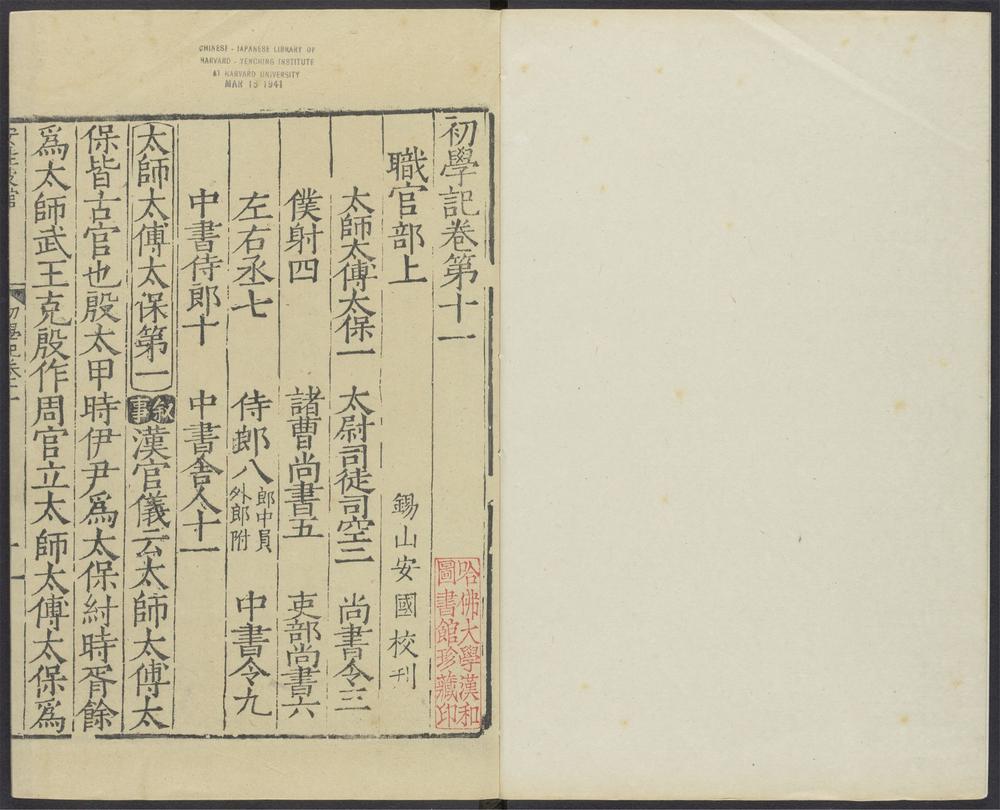 CHINESE - JAPANESE LIBRARY OF
HARVARD - YENCHING INSTITUTE
AT HARVARD UNIVERSITY
MAR 15 1941
初學記卷第十一
哈佛大學漢和
圖書館珍藏印
職官部上
錫山安國校刊
太師太傅太保一 太尉司徒司空二 尚書令三
僕射四 諸曹尚書五 吏部尚書六
左右丞七 侍郎八 郎中員外郎附 中書令九
中書侍郎十 中書舍人十一
太師太傅太保第一 叙事 漢官儀云太師太傅太
保皆古官也殷太甲時伊尹爲太保紂時胥餘
爲太師武王克殷作周官立太師太傅太保爲
安桂坡館
初學記卷十一
一